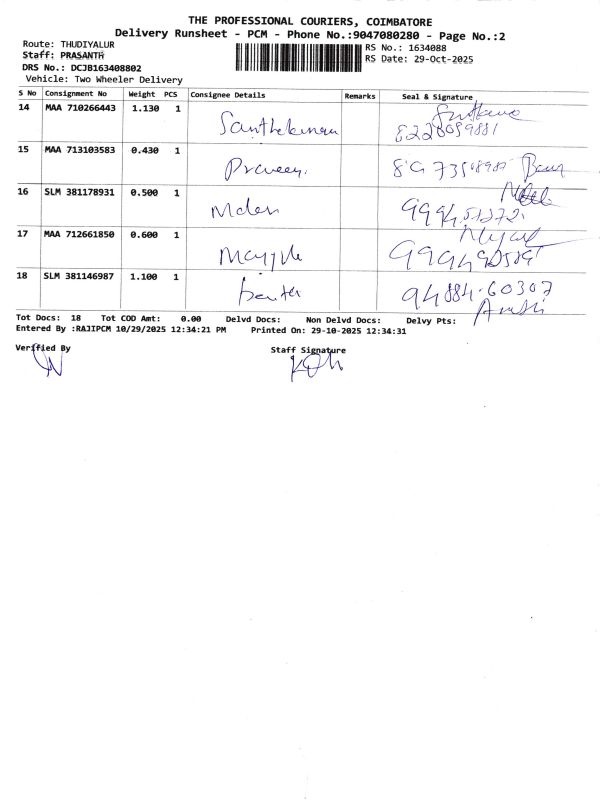 THE PROFESSIONAL COURIERS, COIMBATORE
Delivery Runsheet - PCM - Phone No.:9047080280 - Page No.:2
Route: THUDIYALUR
RS No.: 1634088
Staff: PRASANTH
RS Date: 29-Oct-2025
DRS No.: DCJB163408802
Vehicle: Two Wheeler Delivery
S No Consignment No Weight PCS Consignee Details Remarks Seal & Signature
14 MAA 710266443 1.130 1
8228059881
15 MAA 713103583 0.430 1 Praveen
16 SLM 381178931 0.500 1
17 MAA 712661850 0.600 1
18 SLM 381146987 1.100 1 94884-60307
Tot Docs: 18 Tot COD Amt: 0.00 Delvd Docs: Non Delvd Docs: Delvy Pts:
Entered By :RAJIPCM 10/29/2025 12:34:21 PM Printed On: 29-10-2025 12:34:31
Verified By Staff Signature